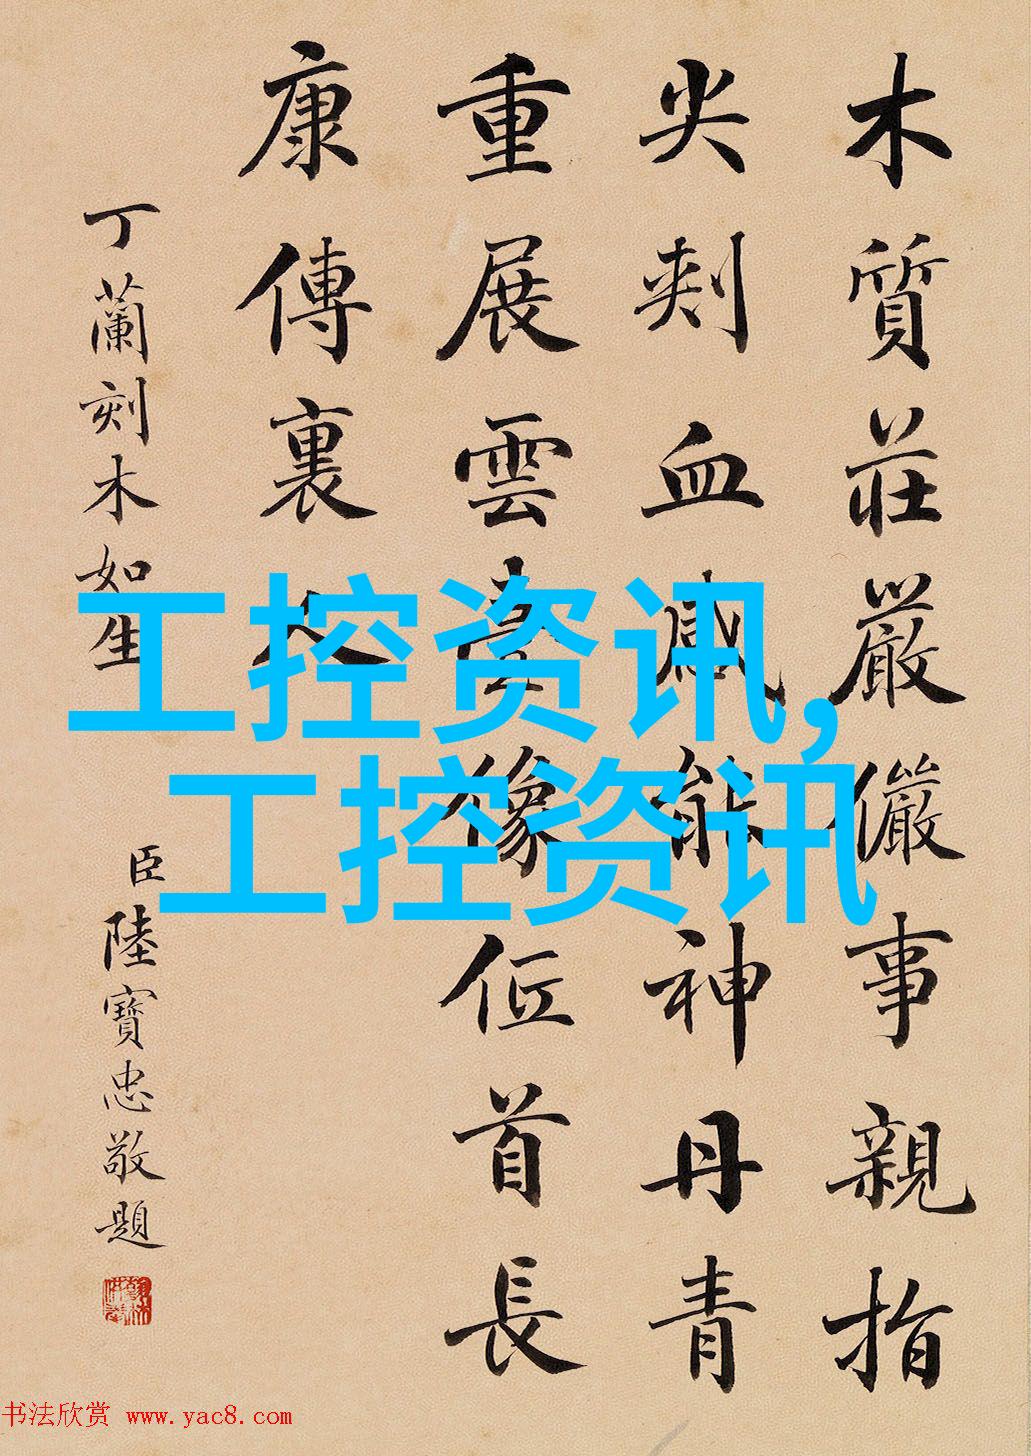 木質莊嚴儼事親指
尖刾血感能神丹青
重展雲臺像位首長
康傳裏人
丁蘭刻木如生
臣陸寶忠敬題
工控资讯,
工控资讯
书法欣赏 www.yac8.com